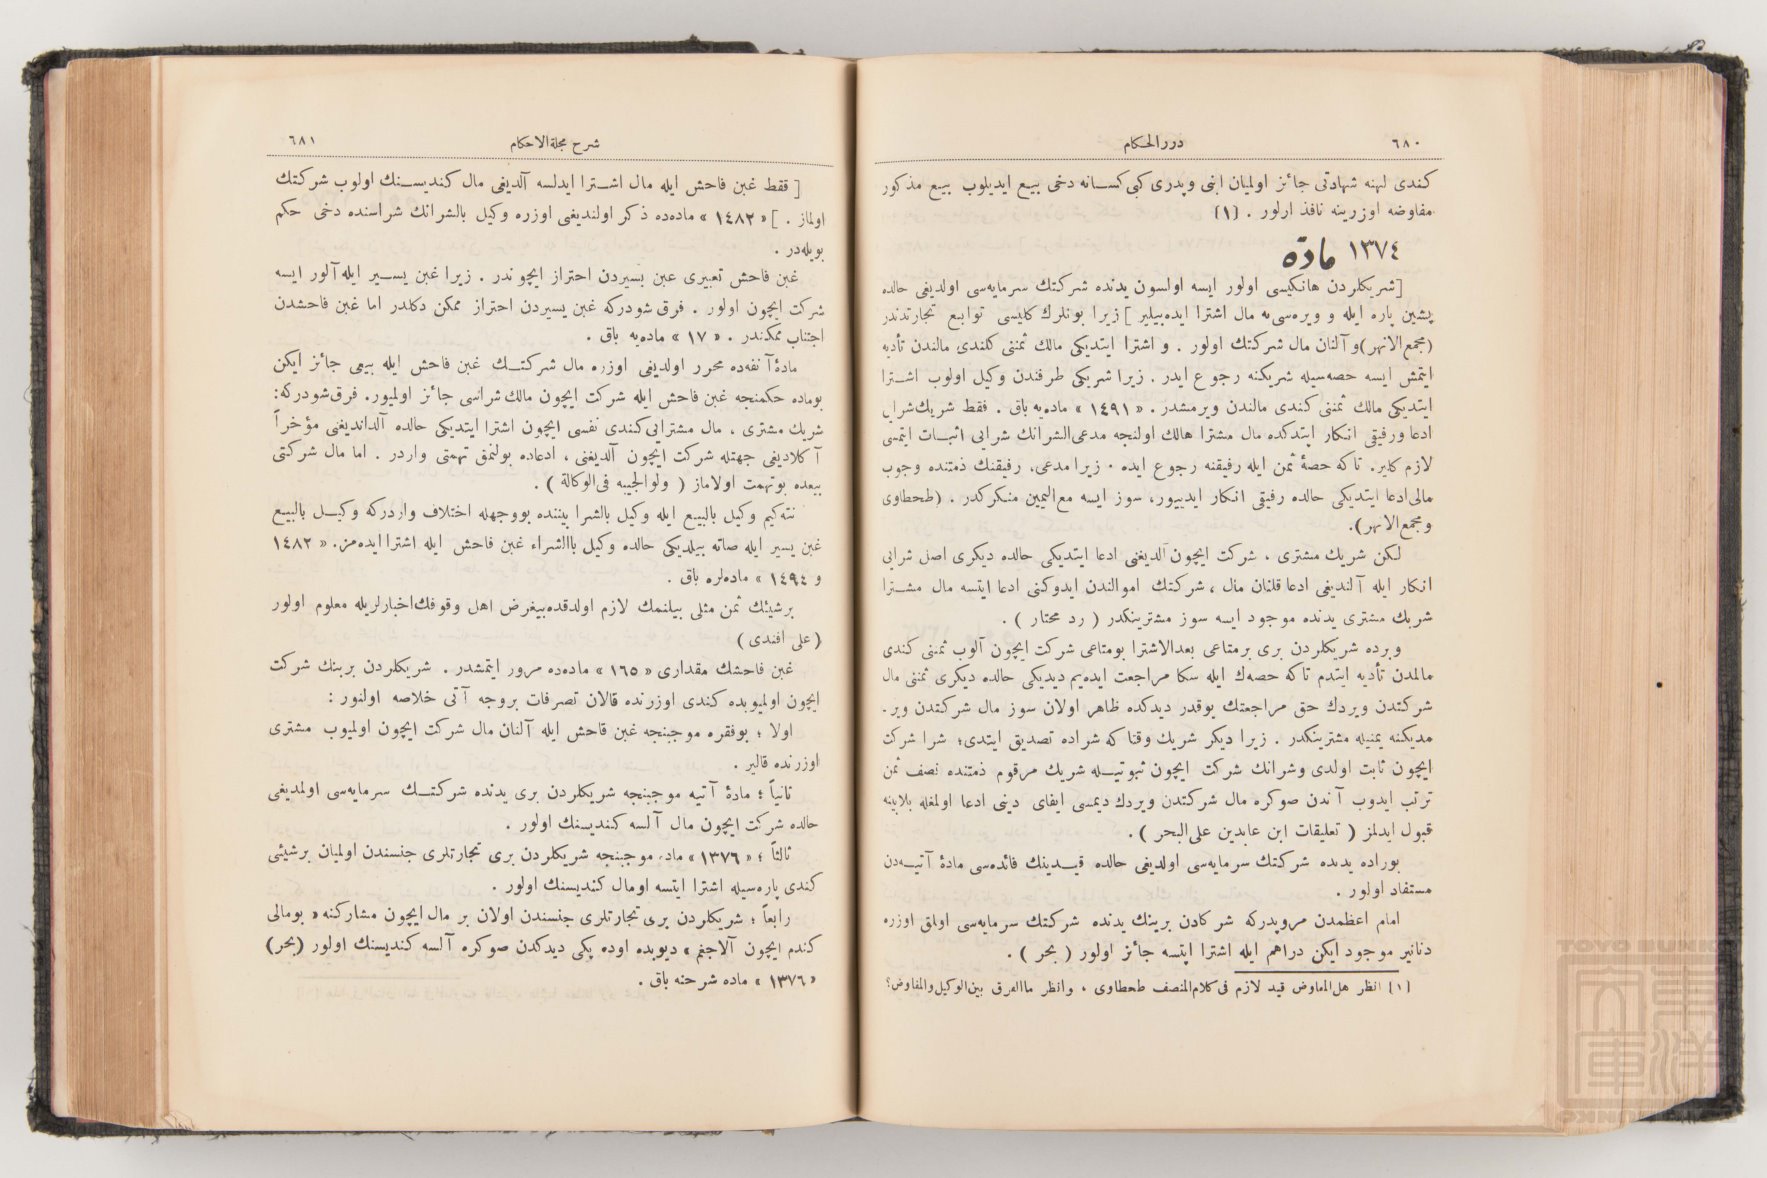 ٦٨٠
دررالحكام
كندى لهنه شهادتى جائز اولميان ابنى وپدرى كبى كسانه دخى بيع ايديلوب بيع مذكور
مفاوضه اوزرينه نافذ اولور . (١)
١٣٧٤ مادّه
[شريكلردن هانكيسى اولور ايسه اولسون يدنده شركتك سرمايه‌سى اولديغى حالده
پشين پاره ايله و ويره‌سى‌يه مال اشترا ايده‌بيلير ] زيرا بونلرك كليسى توابع تجارتدندر
(مجمع‌الانهر) و آلنان مال شركتك اولور . و اشترا ايتديكى مالك ثمننى كندى مالندن تأديه
ايتمش ايسه حصه‌سيله شريكنه رجوع ايدر . زيرا شريكى طرفندن وكيل اولوب اشترا
ايتديكى مالك ثمننى كندى مالندن ويرمشدر . « ١٤٩١ » ماده‌يه باق . فقط شريك شرايى
ادعا ورفيقى انكار ايتدكده مال مشترا هالك اولنجه مدعى‌الشرانك شرايى اثبات ايتمسى
لازم كلير. تاكه حصۀ ثمن ايله رفيقنه رجوع ايده . زيرا مدعى، رفيقنك ذمتنده وجوب
مالى ادعا ايتديكى حالده رفيقى انكار ايدييور، سوز ايسه مع‌اليمين منكركدر . (طحطاوى
ومجمع‌الانهر).
لكن شريك مشترى ، شركت ايچون آلديغنى ادعا ايتديكى حالده ديكرى اصل شرايى
انكار ايله آلنديغى ادعا قلنان مال ، شركتك اموالندن ايدوكنى ادعا ايتسه مال مشترا
شريك مشترى يدنده موجود ايسه سوز مشترينكدر ( رد محتار ) .
وبرده شريكلردن برى برمتاعى بعدالاشترا بومتاعى شركت ايچون آلوب ثمننى كندى
مالمدن تأديه ايتدم تاكه حصه‌ك ايله سكا مراجعت ايده‌يم ديديكى حالده ديكرى ثمننى مال
شركتدن ويردك حق مراجعتك يوقدر ديدكده ظاهر اولان سوز مال شركتدن وير-
مديكنه يمينيله مشترينكدر . زيرا ديكر شريك وقتا كه شراده تصديق ايتدى؛ شرا شركت
ايچون ثابت اولدى وشرانك شركت ايچون ثبوتيله شريك مرقوم ذمتنده نصف ثمن
ترتب ايدوب آندن صوكره مال شركتدن ويردك ديمسى ايفاى دينى ادعا اولمغله بلابينه
قبول ايدلمز ( تعليقات ابن عابدين على‌البحر ) .
بوراده يدنده شركتك سرمايه‌سى اولديغى حالده قيدينك فائده‌سى مادۀ آتيه‌دن
مستفاد اولور .
امام اعظمدن مرويدركه شركادن برينك يدنده شركتك سرمايه‌سى اولمق اوزره
دنانير موجود ايكن دراهم ايله اشترا ايتسه جائز اولور ( بحر ) .
(١) انظر هل‌المفاوض قيد لازم فى كلام‌المنصف طحطاوى . وانظر ماالفرق بين‌الوكيل والمفاوض؟
شرح مجلةالاحكام
٦٨١
[ فقط غبن فاحش ايله مال اشترا ايدلسه آلديغى مال كنديسنك اولوب شركتك
اولماز . ] « ١٤٨٢ » ماده‌ده ذكر اولنديغى اوزره وكيل بالشرانك شراسنده دخى حكم
بويله‌در .
غبن فاحش تعبيرى غبن يسيردن احتراز ايچوندر . زيرا غبن يسير ايله آلور ايسه
شركت ايچون اولور . فرق شودركه غبن يسيردن احتراز ممكن دكلدر اما غبن فاحشدن
اجتناب ممكندر . « ١٧ » ماده‌يه باق .
مادۀ آنفه‌ده محرر اولديغى اوزره مال شركتك غبن فاحش ايله بيعى جائز ايكن
بوماده حكمنجه غبن فاحش ايله شركت ايچون مالك شراسى جائز اولميور. فرق شودركه:
شريك مشترى ، مال مشترايى كندى نفسى ايچون اشترا ايتديكى حالده آلدانديغنى مؤخراً
آكلاديغى جهتله شركت ايچون آلديغنى ، ادعاده بولنمق تهمتى واردر . اما مال شركتى
بيعده بوتهمت اولاماز ( ولوالجيه فى‌الوكالة ) .
نته‌كيم وكيل بالبيع ايله وكيل بالشرا بيننده بووجهله اختلاف واردركه وكيل بالبيع
غبن يسير ايله صاته بيلديكى حالده وكيل باالشراء غبن فاحش ايله اشترا ايده‌مز. « ١٤٨٢
و ١٤٩٤ » ماده‌لره باق .
برشيئك ثمن مثلى بيلنمك لازم اولدقده بيغرض اهل وقوفك اخبارلريله معلوم اولور
(على افندى)
غبن فاحشك مقدارى « ١٦٥ » ماده‌ده مرور ايتمشدر . شريكلردن برينك شركت
ايچون اولميوبده كندى اوزرنده قالان تصرفات بروجه آتى خلاصه اولنور :
اولا ؛ بوفقره موجبنجه غبن فاحش ايله آلنان مال شركت ايچون اولميوب مشترى
اوزرنده قالير .
ثانياً ؛ مادۀ آتيه موجبنجه شريكلردن برى يدنده شركتك سرمايه‌سى اولمديغى
حالده شركت ايچون مال آلسه كنديسنك اولور .
ثالثاً ؛ « ١٣٧٦ » ماده موجبنجه شريكلردن برى تجارتلرى جنسندن اولميان برشيئى
كندى پاره‌سيله اشترا ايتسه اومال كنديسنك اولور .
رابعاً ؛ شريكلردن برى تجارتلرى جنسندن اولان بر مال ايچون مشاركنه « بومالى
كندم ايچون آلاجغم » ديوبده اوده پكى ديدكدن صوكره آلسه كنديسنك اولور (بحر)
« ١٣٧٦ » ماده شرحنه باق .
TOYO BUNKO